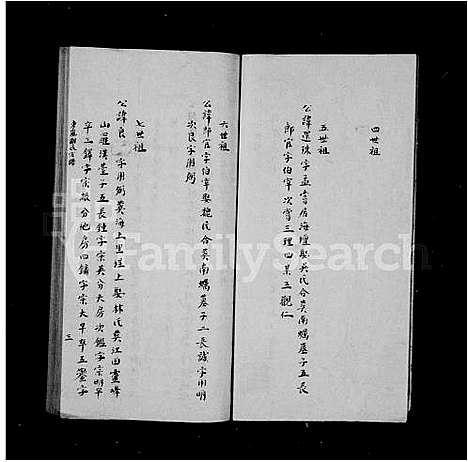 四世祖
五世祖
公諱還珠字孟嘗居海壇娶吳氏合葬南蠣墓子五長
郎官字伯宰次賞三理四某五觀仁
六世祖
公諱郎官字伯宰娶魏氏合葬南蠣墓子二長誠字用明
次良字用弼
七世祖
公諱良字用弼葬海上里埕上娶林氏葬江田靈峰
山羅漢臺子五長鍾字宗英分大房次鑑字宗明早
卒三鐸字宗啟分地房四鏞字宗大早卒五鑾字
三
FamilySearch